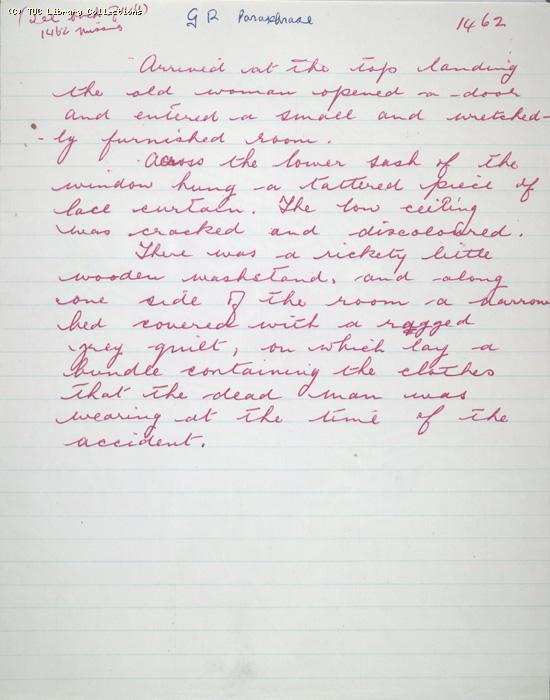 (c) TUC Library Collections
1462 missing
G R Paraphrase
1462
Arrived at the top landing
the old woman opened a door
and entered a small and wretched-
-ly furnished room.
Across the lower sash of the
window hung a tattered piece of
lace curtain. The low ceiling
was cracked and discoloured.
There was a rickety little
wooden washstand, and along
one side of the room a narrow
bed covered with a ragged
grey quilt, on which lay a
bundle containing the clothes
that the dead man was
wearing at the time of the
accident.